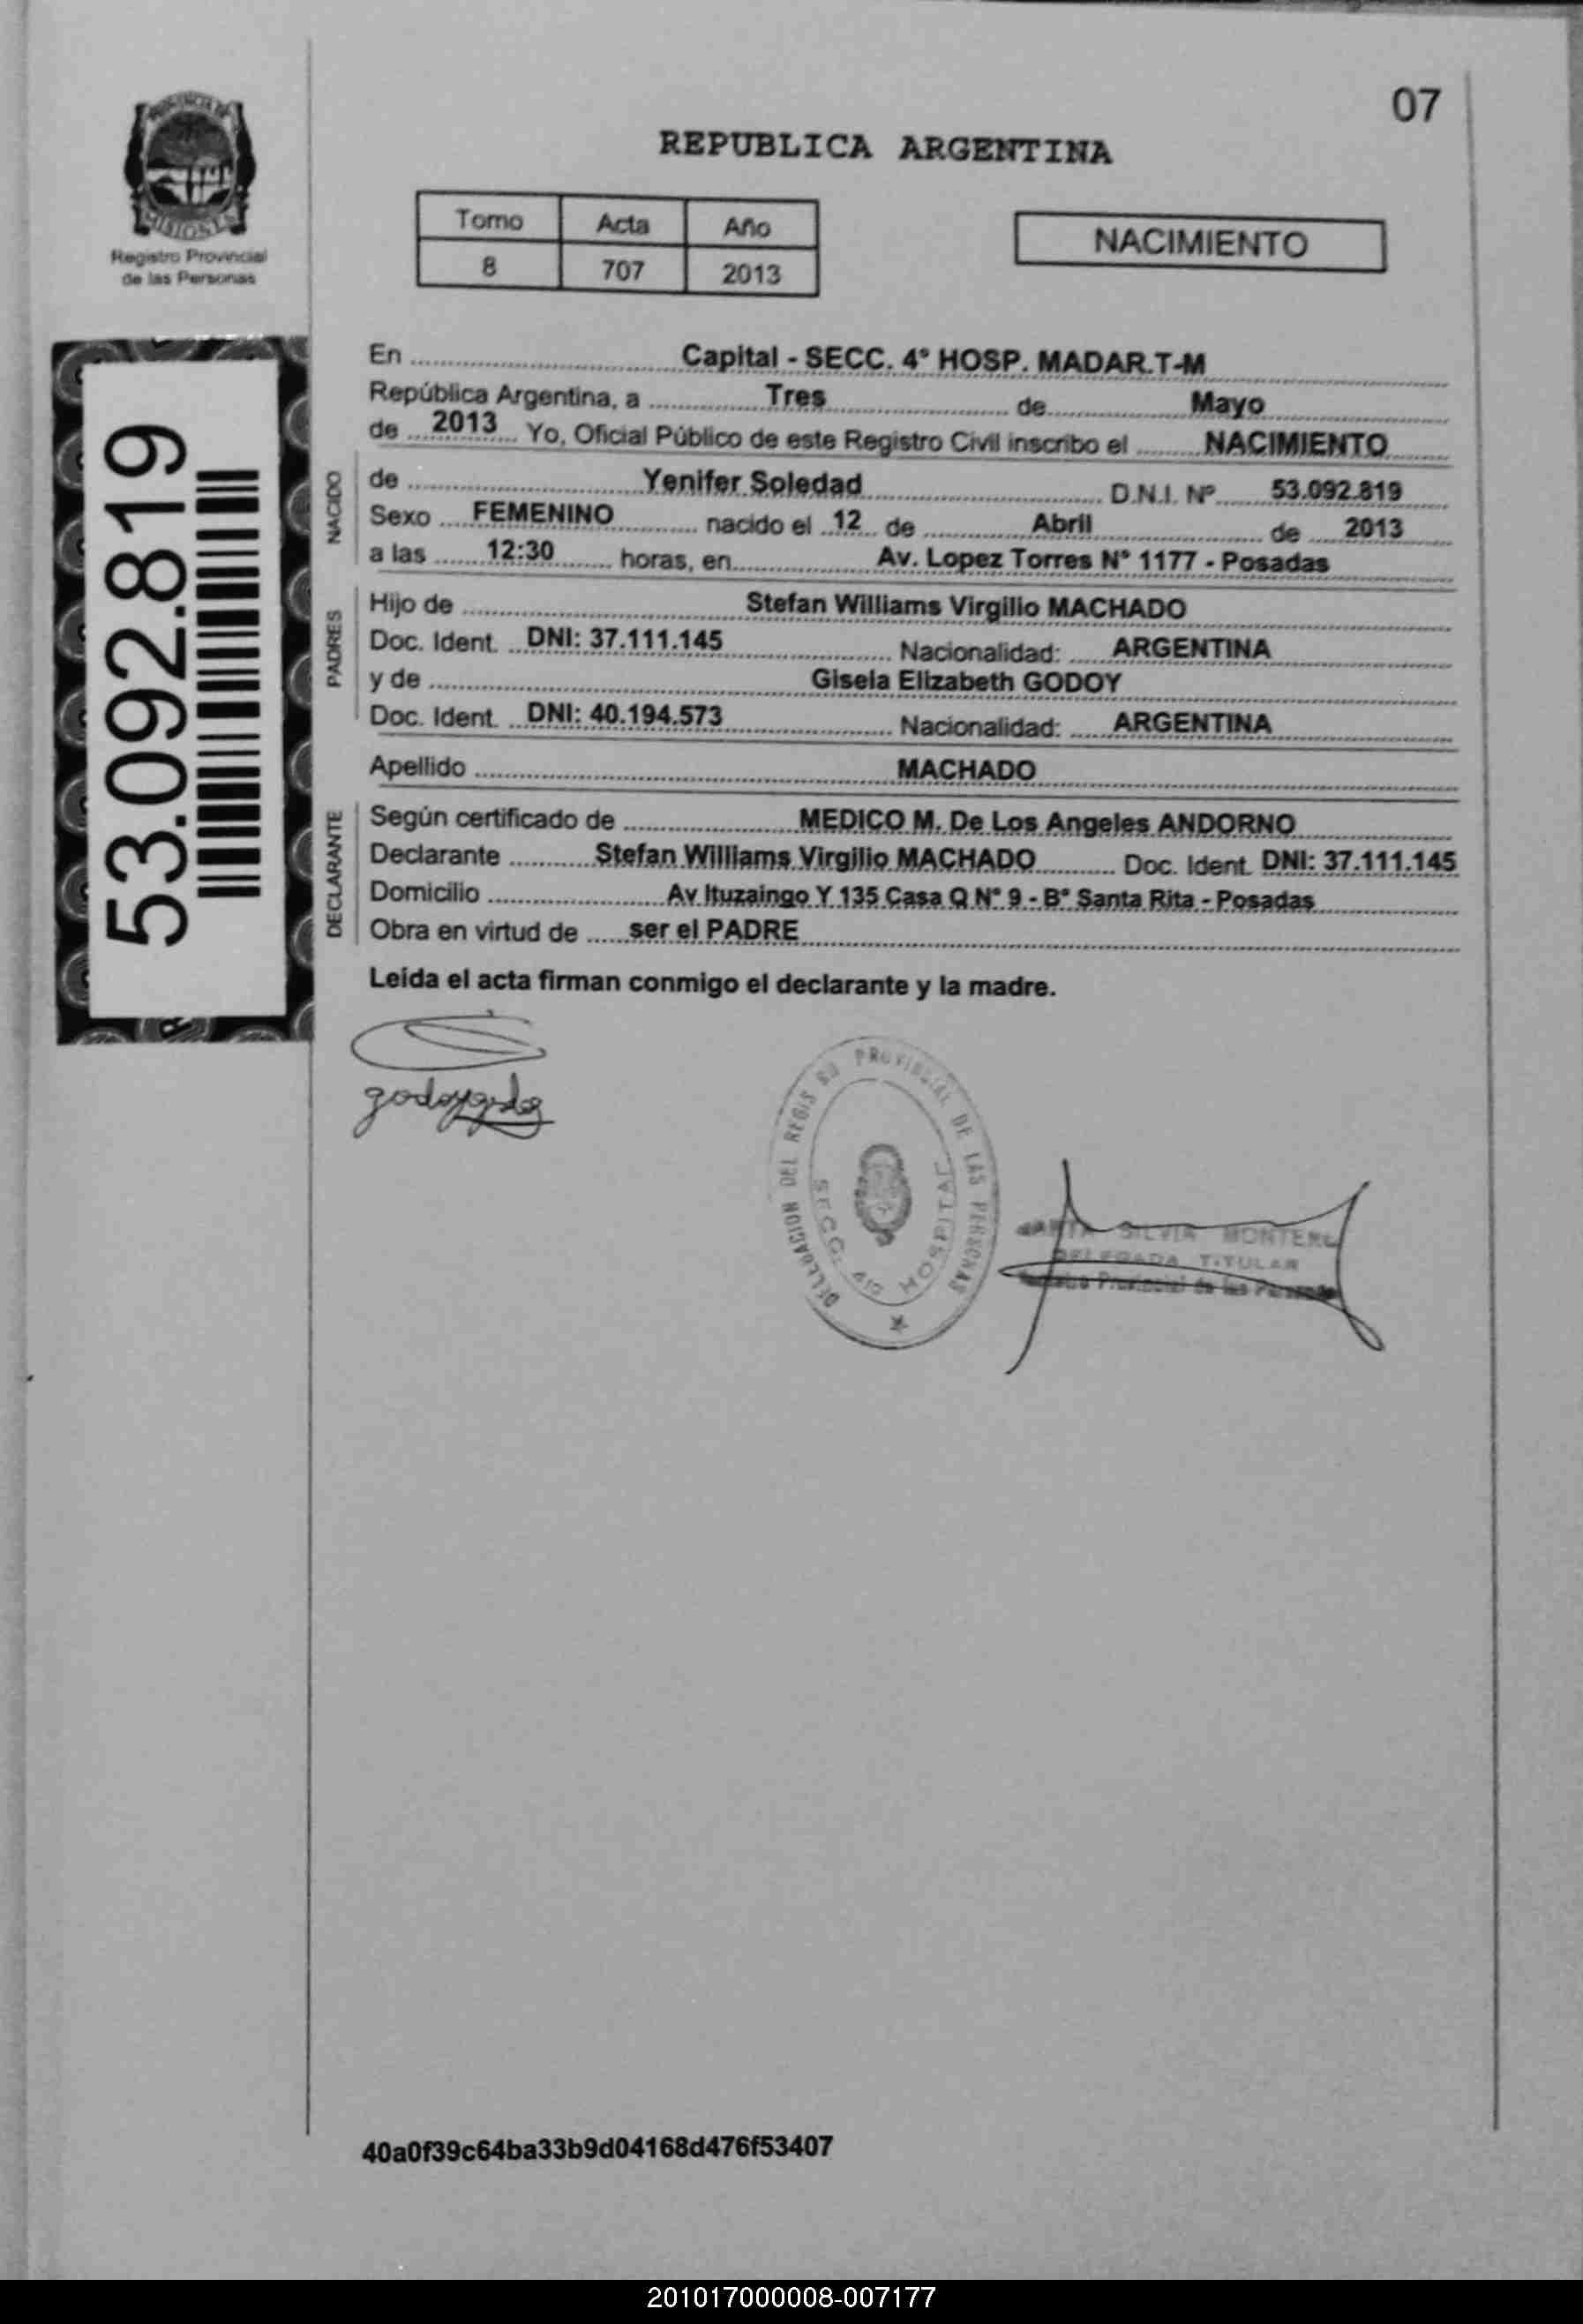 07
REPUBLICA ARGENTINA
Tomo Acta Año
8 707 2013
NACIMIENTO
PROVINCIA DE
MISIONES
Registro Provincial
de las Personas
53.092.819
En Capital - SECC. 4° HOSP. MADAR.T-M
República Argentina, a Tres de Mayo
de 2013 Yo, Oficial Público de este Registro Civil inscribo el NACIMIENTO
NACIDO
de Yenifer Soledad D.N.I. Nº 53.092.819
Sexo FEMENINO nacido el 12 de Abril de 2013
a las 12:30 horas, en Av. Lopez Torres N° 1177 - Posadas
PADRES
Hijo de Stefan Williams Virgilio MACHADO
Doc. Ident. DNI: 37.111.145 Nacionalidad: ARGENTINA
y de Gisela Elizabeth GODOY
Doc. Ident. DNI: 40.194.573 Nacionalidad: ARGENTINA
Apellido MACHADO
DECLARANTE
Según certificado de MEDICO M. De Los Angeles ANDORNO
Declarante Stefan Williams Virgilio MACHADO Doc. Ident. DNI: 37.111.145
Domicilio Av Ituzaingo Y 135 Casa Q N° 9 - B° Santa Rita - Posadas
Obra en virtud de ser el PADRE
Leída el acta firman conmigo el declarante y la madre.
DELEGACION DEL REGISTRO PROVINCIAL DE LAS PERSONAS
SECC. 4ta HOSPITAL
SILVIA MONTERO
DELEGADA TITULAR
Provincial de las Personas
40a0f39c64ba33b9d04168d476f53407
201017000008-007177